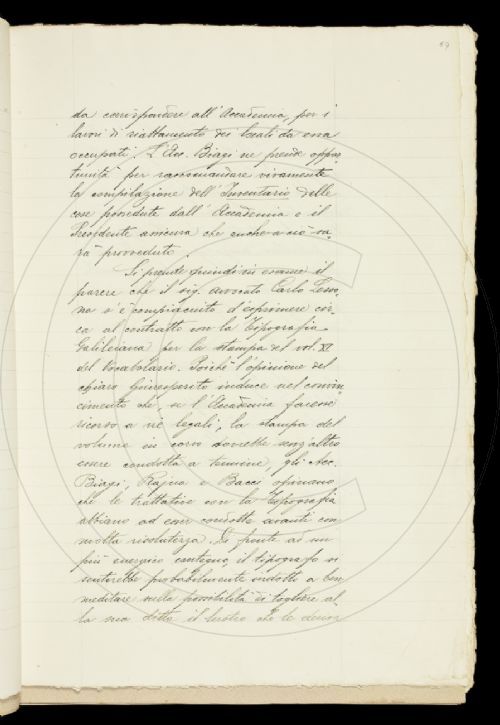 59
da corrispondere all'Accademia, per i
lavori di riattamento dei locali da essa
occupati. L'Acc. Biagi ne prende oppor-
tunità per raccomandare vivamente
la compilazione dell'Inventario delle
cose possedute dall'Accademia e il
Presidente assicura che anche a ciò sa-
rà provveduto.
Si prende quindi in esame il
parere che il sig. avvocato Carlo
s'è compiaciuto d'esprimere cir-
ca al contratto con la Tipografia
Galileiana per la stampa del vol. XI
del Vocabolario. Poichè l'opinione del
chiaro giureperito induce nel convin-
cimento che, se l'Accademia facesse
ricorso a vie legali, la stampa del
volume in corso dovrebbe senz'altro
essere condotta a termine, gli Acc.
Biagi, Rajna e Bacci opinano
che le trattative con la Tipografia
abbiano ad esser condotte avanti con
molta risolutezza. Di fronte ad un
più energico contegno, il tipografo si
sentirebbe probabilmente indotto a ben
meditare sulla possibilità di togliere al-
la sua ditta il lustro che le deriva